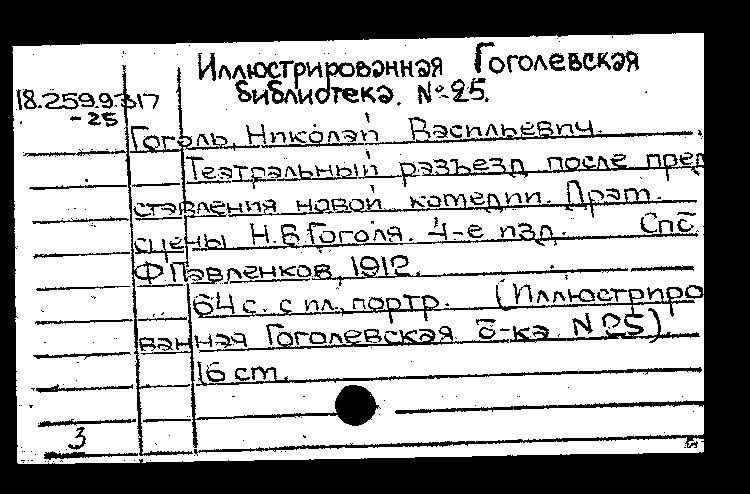 Иллюстрированная Гоголевская
библиотека. №25.
18.259.9.317
-25
Гоголь, Николай Васильевич.
Театральный разъезд после пред
ставления новой комедии. Драм.
сцены Н.В.Гоголя. 4-е изд. Спб
Ф Павленков, 1912.
64 с. с ил., портр. (Иллюстриро
ванная Гоголевская б-ка N 25)
16 см.
3